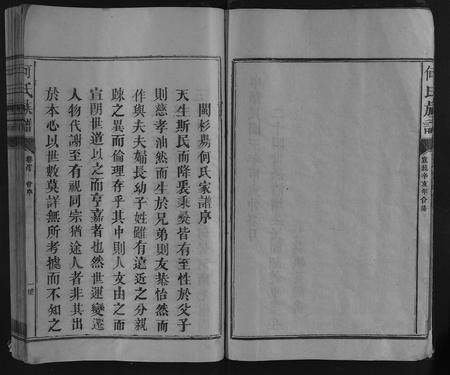 何氏族譜
宣統辛亥年合修
閩杉陽何氏家譜序
天生斯民而降衷秉彝皆有至性於父子
則慈孝油然而生於兄弟則友恭怡然而
作與夫夫婦長幼子姓雖有遠近之分親
踈之異而倫理存乎其中則人文由之而
宣朗世道以之而亨嘉者也然世運變遷
人物代謝至有視同宗猶途人者非其出
於本心以世數莫詳無所考據而不知之
何氏族譜
卷首 會序